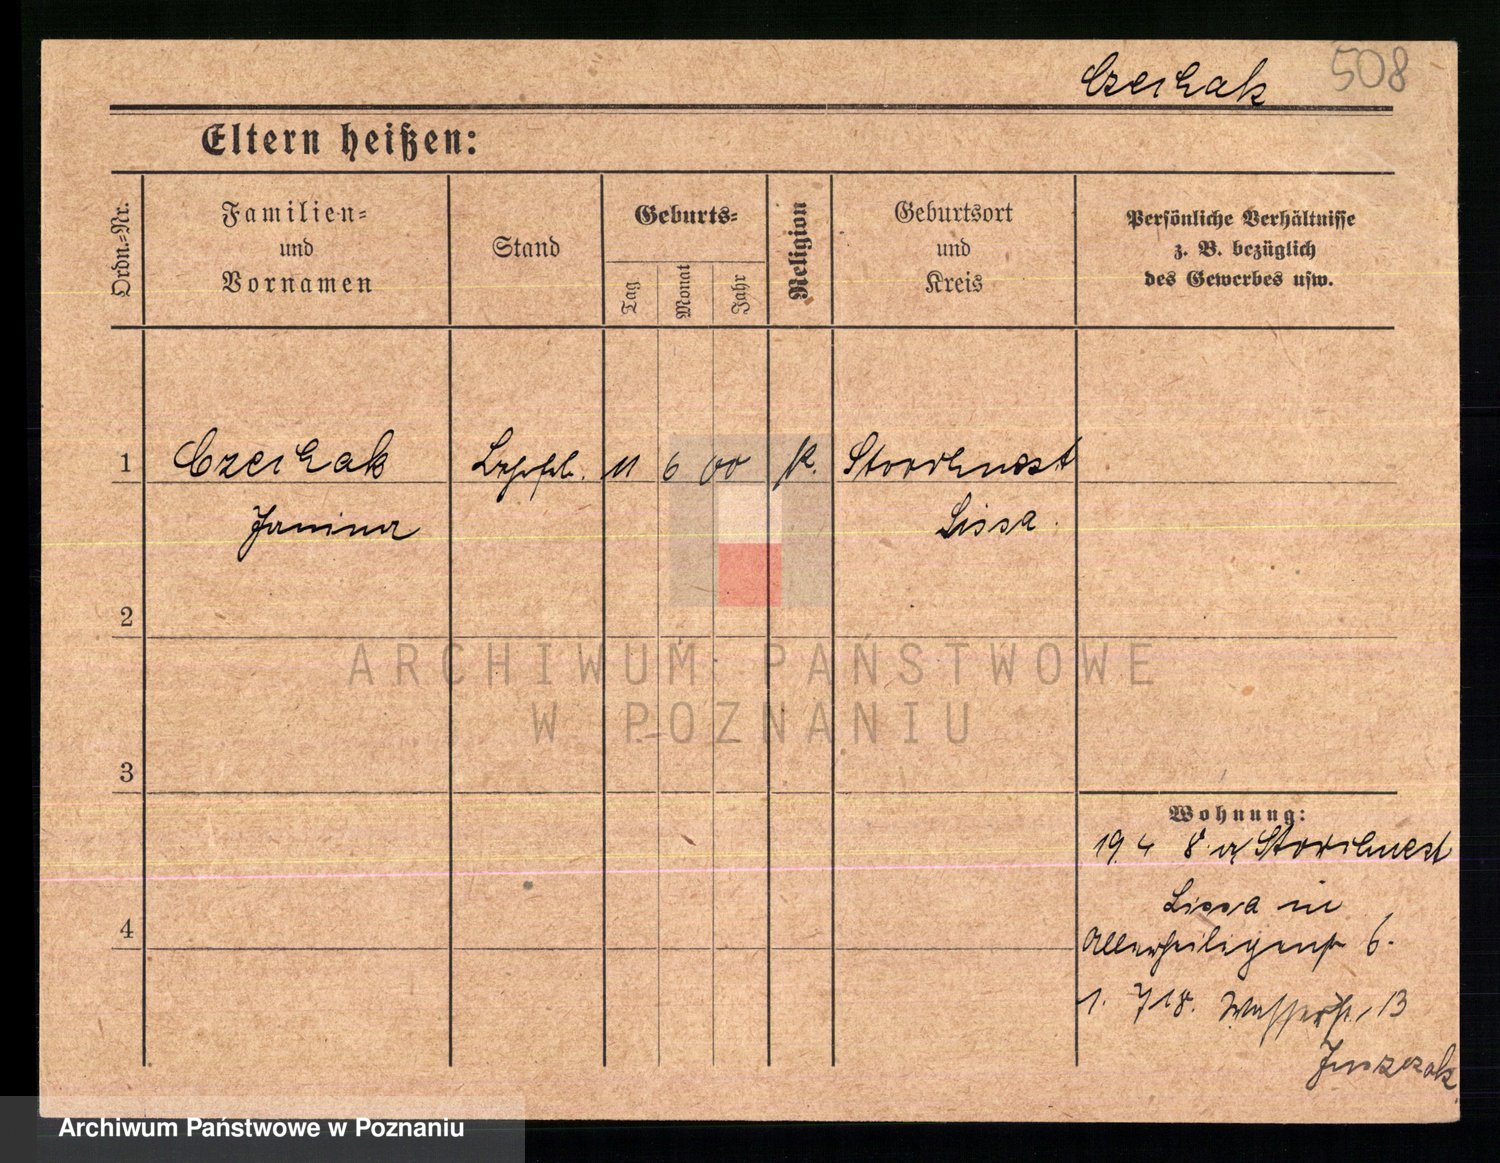 Czechak 508
Eltern heißen:
Ordn.-Nr.
Familien-
und
Vornamen
Stand
Geburts-
Tag
Monat
Jahr
Religion
Geburtsort
und
Kreis
Persönliche Verhältnisse
z. B. bezüglich
des Gewerbes usw.
1 Czechak 11 6 00 k. Storchnest
Janina Lissa.
2
3
4
ARCHIWUM PAŃSTWOWE
W POZNANIU
Wohnung:
19.4 Storchnest
Lissa in
Allerheiligenst 6.
1. 7 18. Wasserstr. 13
Juszczak
Archiwum Państwowe w Poznaniu